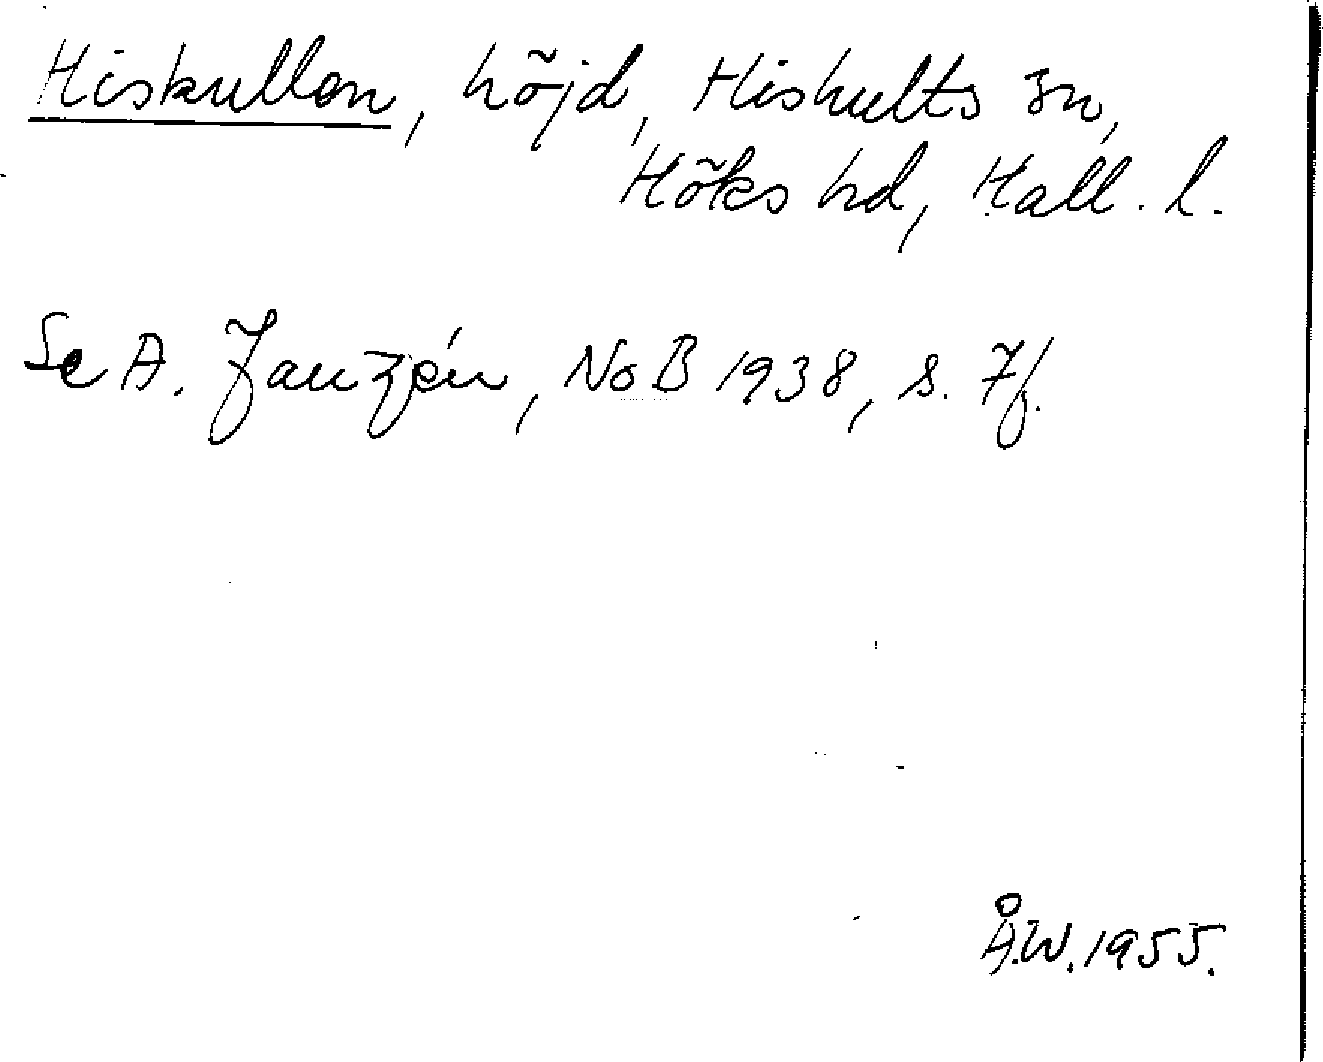 Hiskullen, höjd, Hishults sn,
Höks hd, Hall. l.
Se A. Janzén, NoB 1938, s. 7f.
Å.W. 1955.